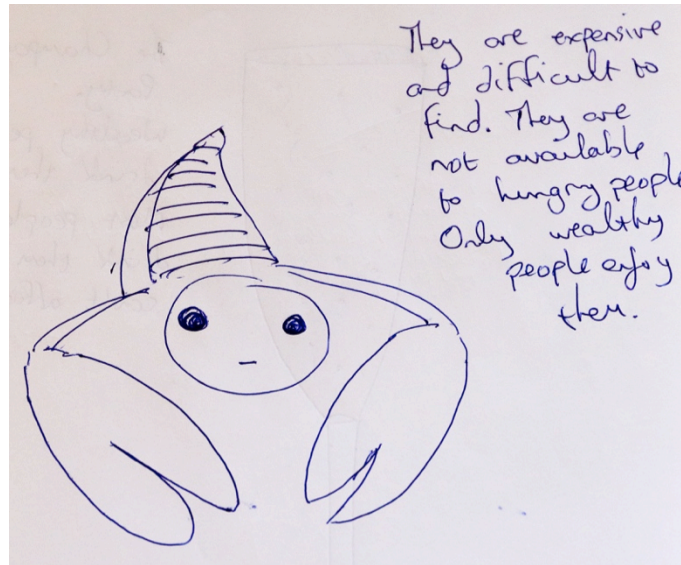 They are expensive
and difficult to
find. They are
not available
to hungry people
Only wealthy
people enjoy
them.